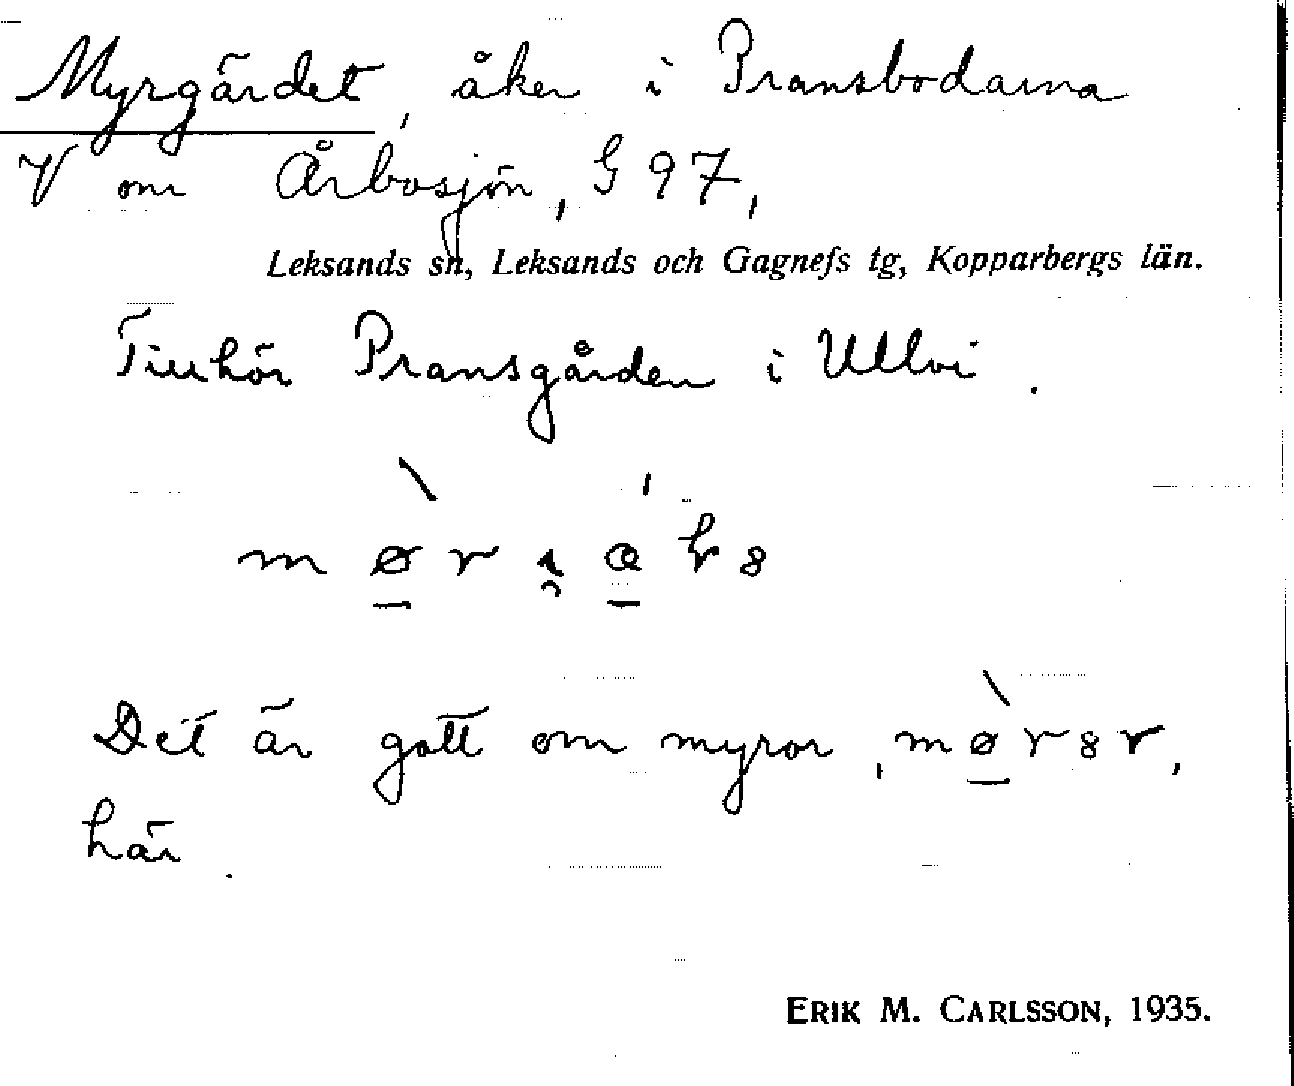 Myrgärdet, åker i Pransbodarna
V om Årbosjön, G 97,
Leksands sn, Leksands och Gagnefs tg, Kopparbergs län.
Tillhör Pransgården i Ullvi.
Det är gott om myror,
här.
ERIK M. CARLSSON, 1935.